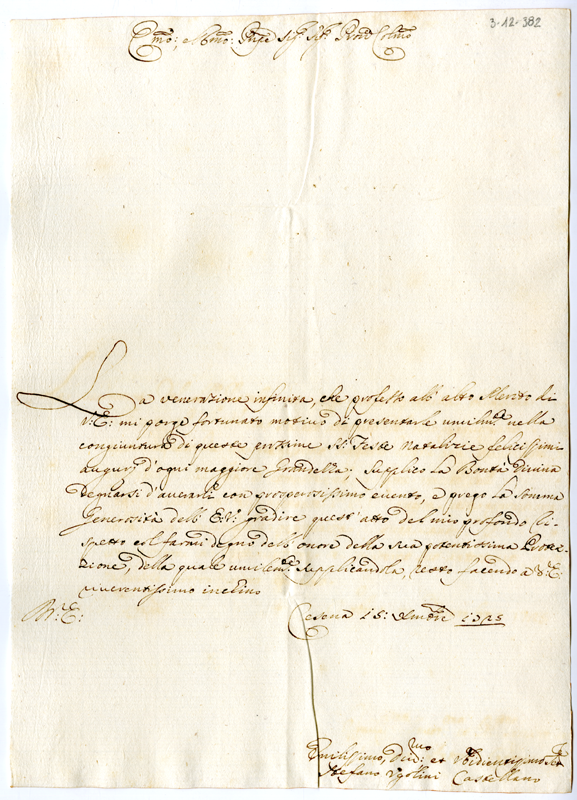 3.12.382
Em̄o: e Rm̄o: Prn̄pe Sig:r Sig:r Pron̄ Colm̄o
La venerazione infinita, che professo all' alto Merito di
V: E: mi porge fortunato motivo di presentarle umilm:te nella
congiuntura di queste prossime SS: Feste Natalizie felicissimi
augurj d'ogni maggiore Grandezza; Supplico La Bontà Divina
degnarsi d'avverarli con prosperissimo evento, e prego La somma
Generosità dell' E: V: gradire quest' atto del mio profondo Ri-
spetto col farmi degno dell' onore della sua potentissima Prote-
zione, della quale umilem:te supplicandola, resto facendo a V: E:
riverentissimo inchino
V: E:
Cesena 15: Xmbre 1725
Umilissimo, Div:mo et Obbidientissimo Ser:
Stefano Ugolini Castellano